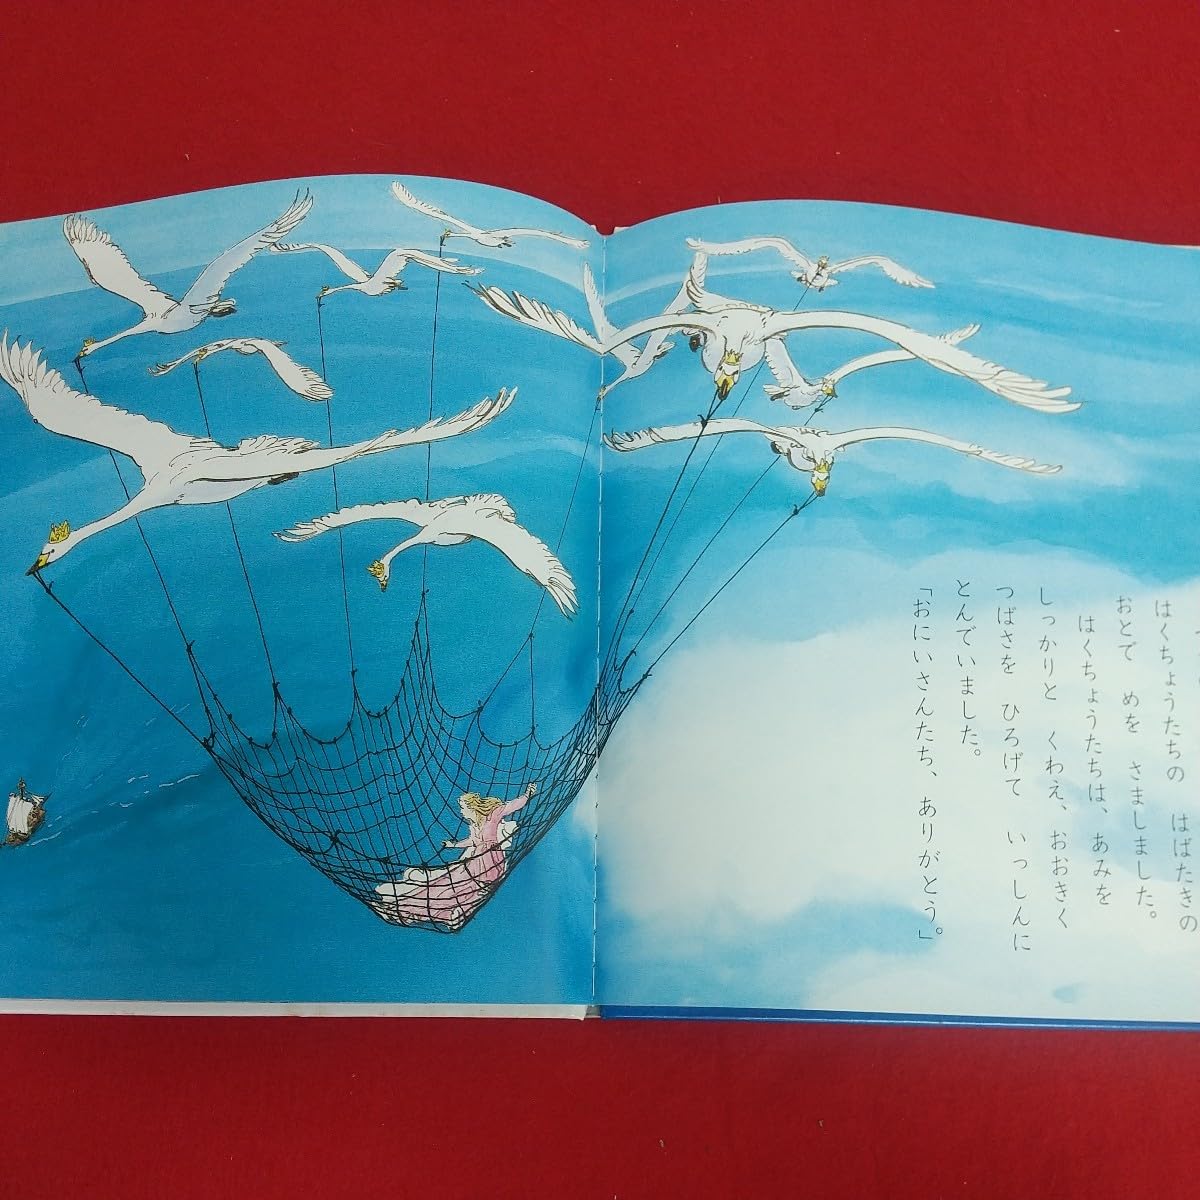 はくちょうたちの はばたきの
おとで めを さましました。
はくちょうたちは、あみを
しっかりと くわえ、おおきく
つばさを ひろげて いっしんに
とんでいました。
「おにいさんたち、ありがとう。」